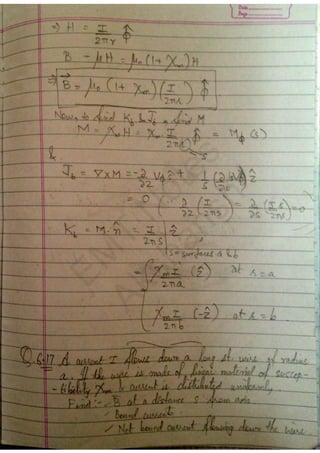 Date
⇒ H = I/2πr φ̂
B = μH = μ₀ (1+ χm) H
⇒ B⃗ = μ₀ (1+ χm) (I/2πs) φ̂
Now, to find Kb & Jb, find M
M = χm H = χm I/2πs φ̂ = Mφ (s)
&
Jb = ∇×M = -∂/∂z Mφ ŝ + 1/s (∂ sMφ/∂s) ẑ
= 0
Kb = M × n̂ = I/2πs ẑ
s = surfaces a & b
= χm I/2πa (ẑ) at s = a
χm I/2πb (-ẑ) at s = b
Q. 6.17 A current I flows down a long st. wire of radius
a. If the wire is made of linear material of suscep-
-tibility χm & current is distributed uniformly
Find :- B at a distance s from axis
bound current
Net bound current flowing down the wire